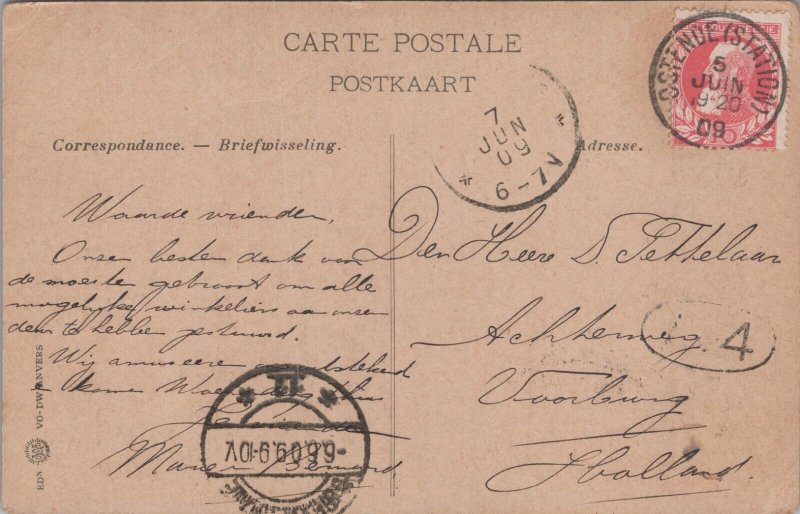 CARTE POSTALE
POSTKAART
Correspondance. — Briefwisseling.
Adresse.
OSTENDE (STATION)
5
JUIN
19-20
09
10
7
JUN
09
6-7V
Waarde vrienden,
Onzen besten dank van
de moeite gebroost om alle
mogelijke winkeliers aan onzen
deur te hebben gestuurd.
Wij amuseeren
komen
Marie Bernard
Den Heere D. Pettelaar
Achterweg
Voorburg
Holland.
4
12
-6.6.09.9-10V
EDN VO-DW ANVERS